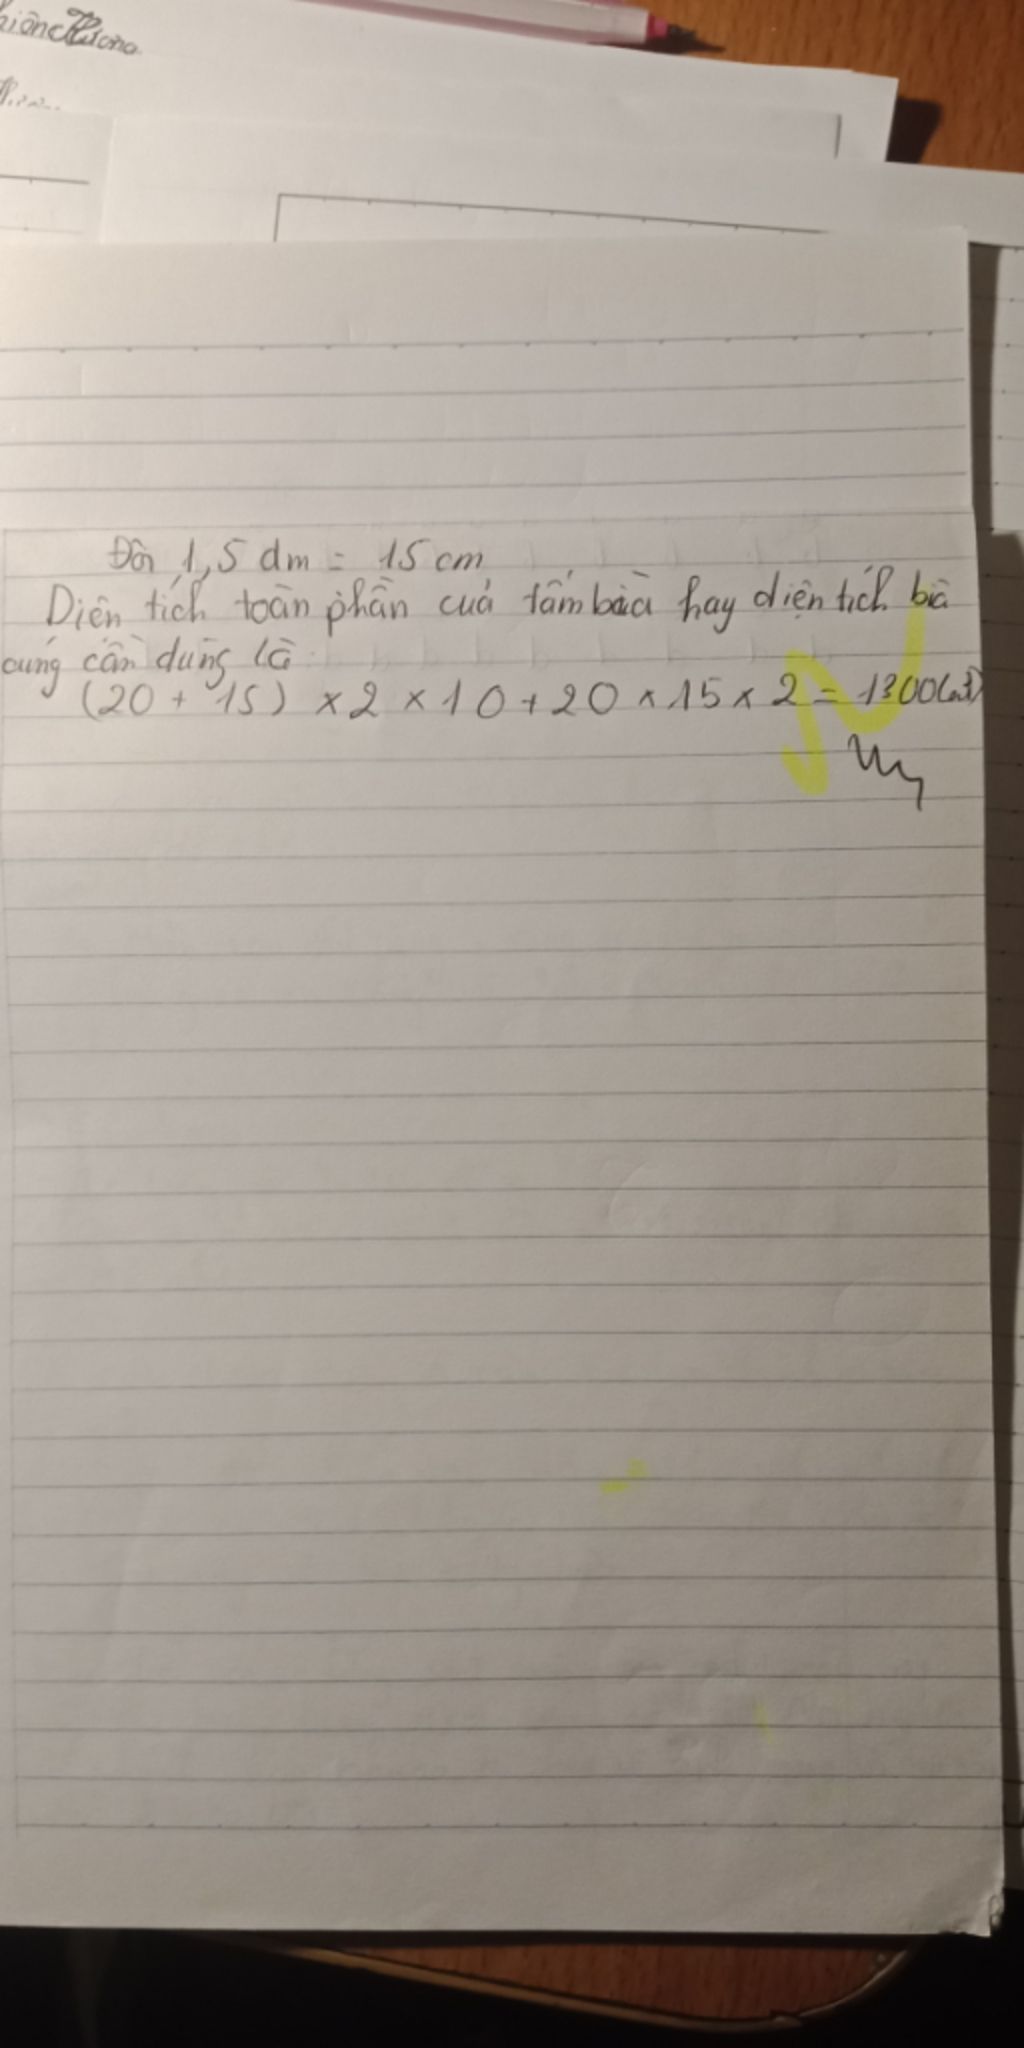 Đổi 1,5 dm = 15 cm
Diện tích toàn phần của tấm bìa hay diện tích bìa
cứng cần dùng là:
(20 + 15) × 2 × 10 + 20 × 15 × 2 = 1300